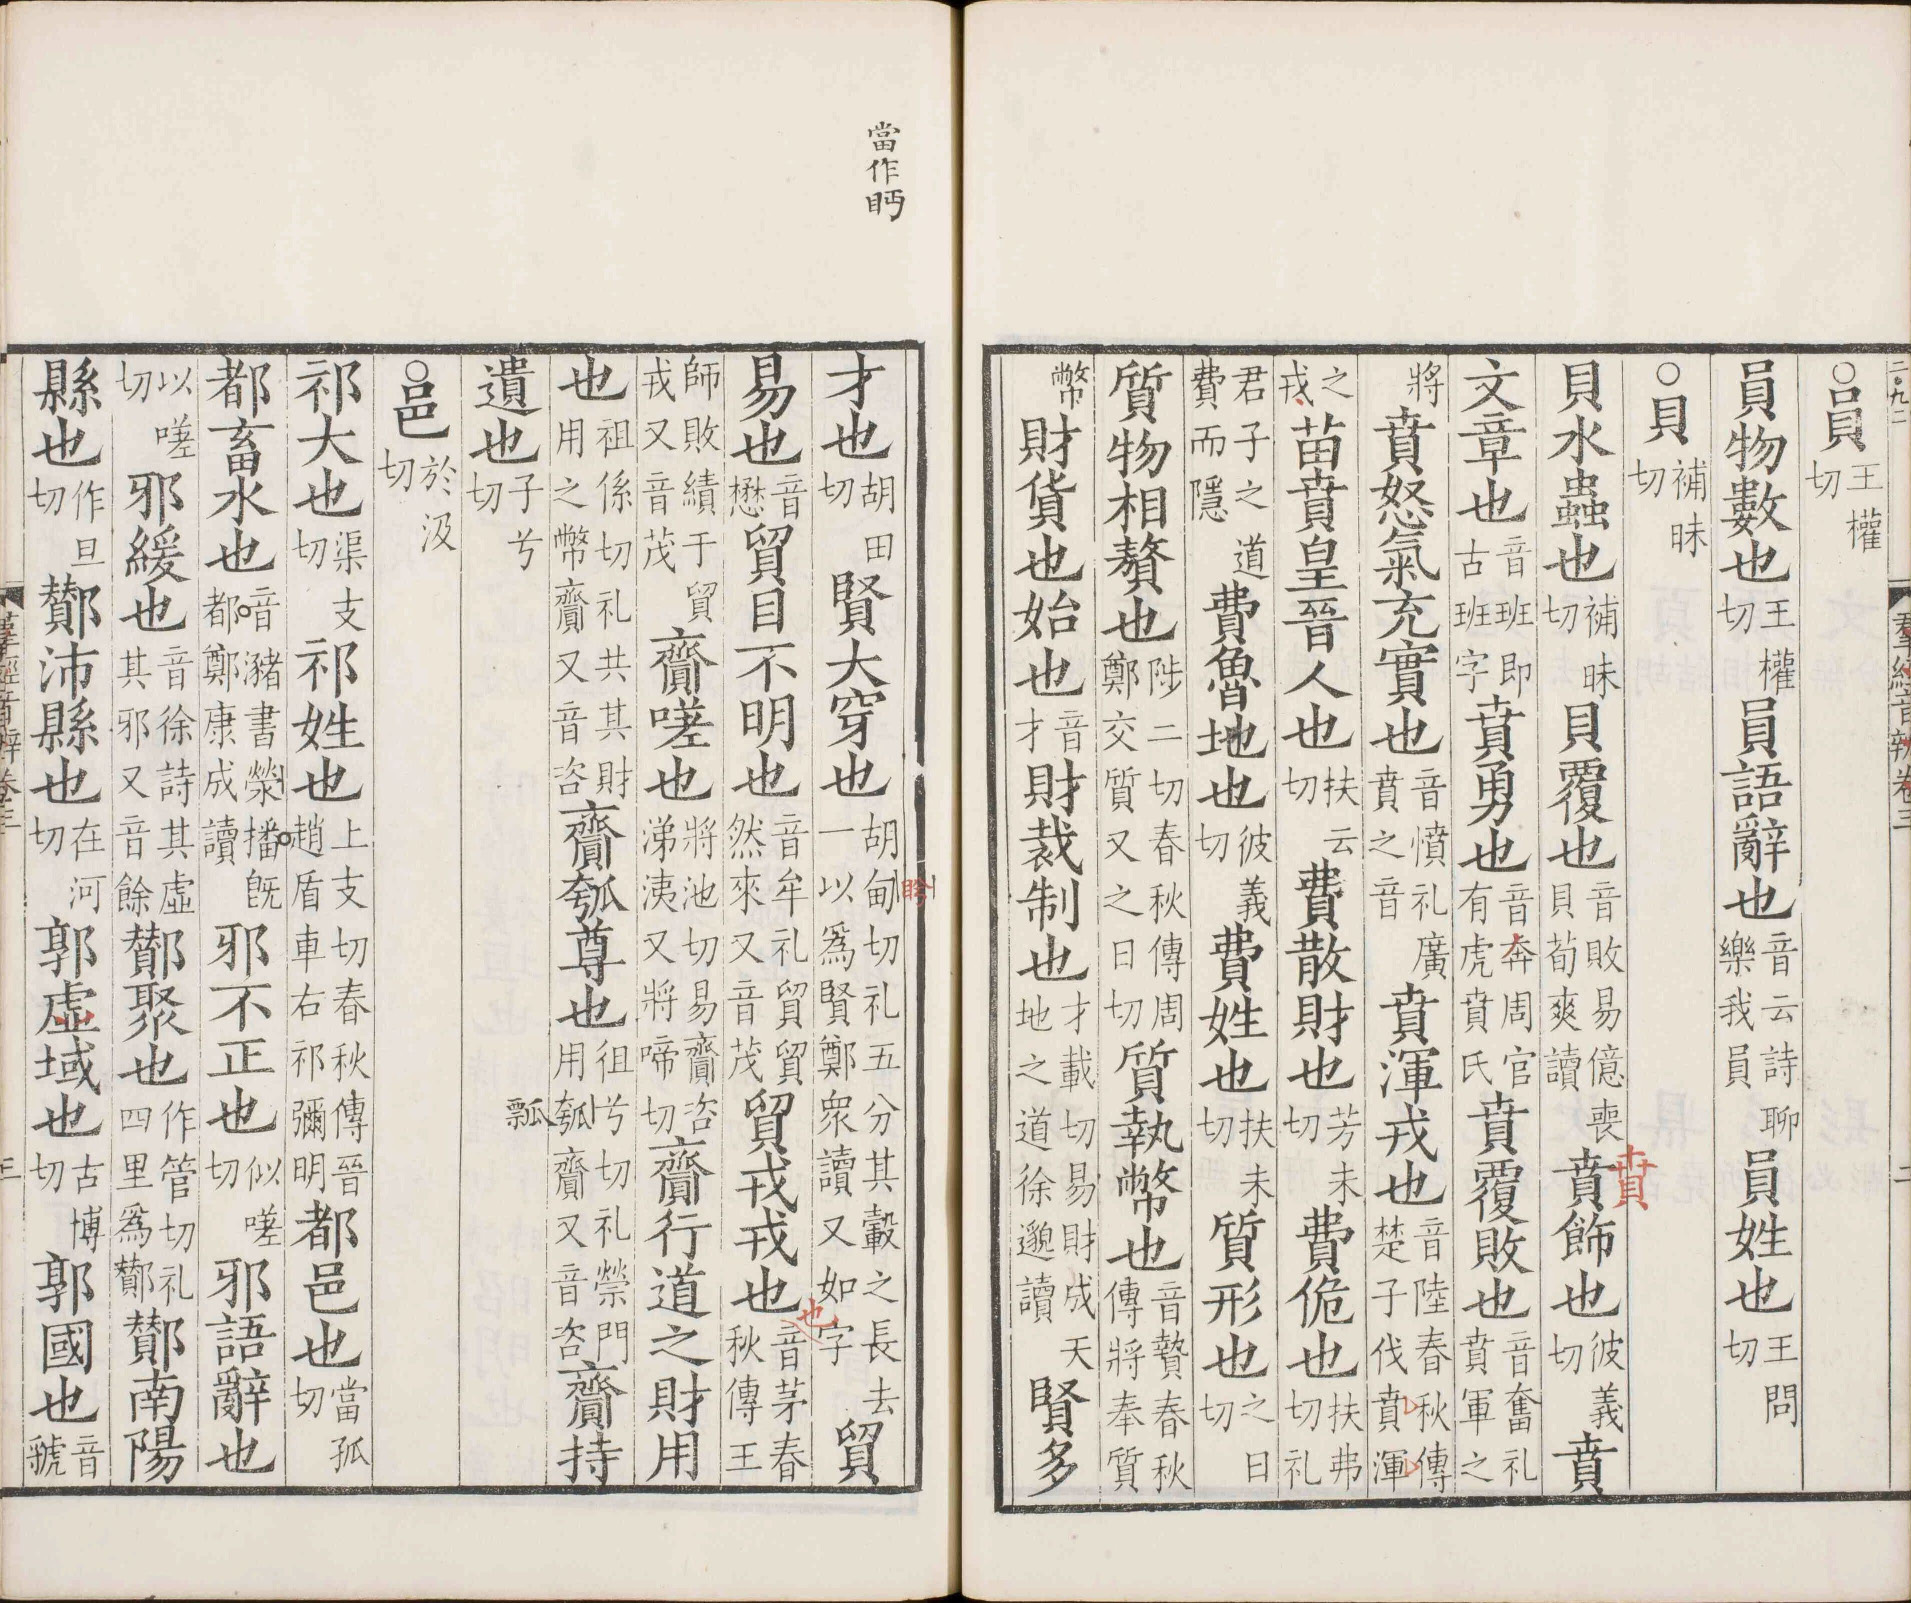 ○員王權切
員物數也王權切員語辭也音云詩聊樂我員員姓也王問切
○貝補昧切
貝水蟲也補昧切貝覆也音敗易億喪貝荀爽讀賁飾也彼義切賁
文章也音班即古班字賁勇也音奔周官有虎賁氏賁覆敗也音奮礼賁軍之
將賁怒氣充實也音憤礼廣賁之音賁渾戎也音陸春秋傳楚子伐賁渾
之戎苗賁皇晉人也扶云切費散財也芳未切費佹也扶弗切礼
君子之道費而隱費魯地也彼義切費姓也扶未切質形也之日切
質物相贅也陟二切春秋傳周鄭交質又之日切質執幣也音贄春秋傳將奉質
幣財貨也始也音才財裁制也才載切易財成天地之道徐邈讀賢多
才也胡田切賢大穿也胡甸切礼五分其轂之長去一以爲賢鄭衆讀又如字貿
易也音懋貿目不明也音牟礼貿貿然來又音茂貿戎戎也音茅春秋傳王
師敗績于貿戎又音茂齎嗟也將池切易齎咨涕洟又將啼切齎行道之財用
也祖係切礼共其財用之幣齎又音咨齎瓠尊也徂兮切礼禜門用瓠齎又音咨齎持
遺也子兮切
○邑於汲切
祁大也渠支切祁姓也上支切春秋傳晉趙盾車右祁彌明都邑也當孤切
都畜水也音瀦書滎播既都鄭康成讀邪不正也似嗟切邪語辭也
以嗟切邪緩也音徐詩其虛其邪又音餘酇聚也作管切礼四里爲酇酇南陽
縣也作旦切酇沛縣也在河切郭虛域也古博切郭國也音虢
當作眄
賁
也
瓢
羣經音辨卷三
二
羣經音辨卷三
三